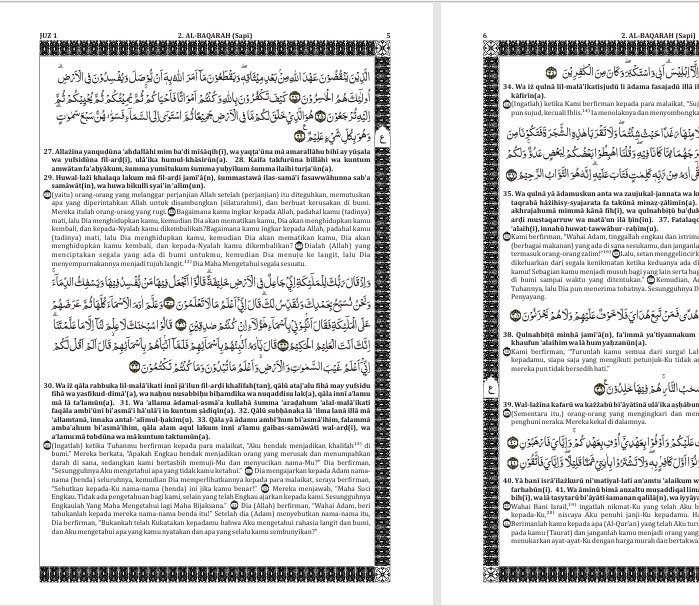 JUZ 1 2. AL-BAQARAH (Sapi) 5
الَّذِيْنَ يَنْقُضُوْنَ عَهْدَ اللّٰهِ مِنْۢ بَعْدِ مِيْثَاقِهٖۖ وَيَقْطَعُوْنَ مَآ اَمَرَ اللّٰهُ بِهٖٓ اَنْ يُّوْصَلَ وَيُفْسِدُوْنَ فِى الْاَرْضِۗ
اُولٰۤىِٕكَ هُمُ الْخٰسِرُوْنَ ۝٢٧ كَيْفَ تَكْفُرُوْنَ بِاللّٰهِ وَكُنْتُمْ اَمْوَاتًا فَاَحْيَاكُمْۚ ثُمَّ يُمِيْتُكُمْ ثُمَّ يُحْيِيْكُمْ ثُمَّ
اِلَيْهِ تُرْجَعُوْنَ ۝٢٨ هُوَ الَّذِيْ خَلَقَ لَكُمْ مَّا فِى الْاَرْضِ جَمِيْعًا ثُمَّ اسْتَوٰٓى اِلَى السَّمَاۤءِ فَسَوّٰىهُنَّ سَبْعَ سَمٰوٰتٍۗ
وَهُوَ بِكُلِّ شَيْءٍ عَلِيْمٌ ۝٢٩
27. Allażīna yanquḍūna 'ahdallāhi mim ba'di mīṡāqih(ī), wa yaqṭa'ūna mā amarallāhu bihī ay yūṣala wa yufsidūna fil-arḍ(i), ulā'ika humul-khāsirūn(a). 28. Kaifa takfurūna billāhi wa kuntum amwātan fa'aḥyākum, ṡumma yumītukum ṡumma yuḥyīkum ṡumma ilaihi turja'ūn(a).
29. Huwal-lażī khalaqa lakum mā fil-arḍi jamī'ā(n), ṡummastawā ilas-samā'i fasawwāhunna sab'a samāwāt(in), wa huwa bikulli syai'in 'alīm(un).
27(yaitu) orang-orang yang melanggar perjanjian Allah setelah (perjanjian) itu diteguhkan, memutuskan
apa yang diperintahkan Allah untuk disambungkan (silaturahmi), dan berbuat kerusakan di bumi.
Mereka itulah orang-orang yang rugi. 28Bagaimana kamu ingkar kepada Allah, padahal kamu (tadinya)
mati, lalu Dia menghidupkan kamu, kemudian Dia akan mematikan kamu, Dia akan menghidupkan kamu
kembali, dan kepada-Nyalah kamu dikembalikan?Bagaimana kamu ingkar kepada Allah, padahal kamu
(tadinya) mati, lalu Dia menghidupkan kamu, kemudian Dia akan mematikan kamu, Dia akan
menghidupkan kamu kembali, dan kepada-Nyalah kamu dikembalikan? 29Dialah (Allah) yang
menciptakan segala yang ada di bumi untukmu, kemudian Dia menuju ke langit, lalu Dia
menyempurnakannya menjadi tujuh langit.¹³⁾ Dia Maha Mengetahui segala sesuatu.
وَاِذْ قَالَ رَبُّكَ لِلْمَلٰۤىِٕكَةِ اِنِّيْ جَاعِلٌ فِى الْاَرْضِ خَلِيْفَةًۗ قَالُوْٓا اَتَجْعَلُ فِيْهَا مَنْ يُّفْسِدُ فِيْهَا وَيَسْفِكُ الدِّمَاۤءَۚ
وَنَحْنُ نُسَبِّحُ بِحَمْدِكَ وَنُقَدِّسُ لَكَۗ قَالَ اِنِّيْٓ اَعْلَمُ مَا لَا تَعْلَمُوْنَ ۝٣٠ وَعَلَّمَ اٰدَمَ الْاَسْمَاۤءَ كُلَّهَا ثُمَّ عَرَضَهُمْ
عَلَى الْمَلٰۤىِٕكَةِ فَقَالَ اَنْۢبِـُٔوْنِيْ بِاَسْمَاۤءِ هٰٓؤُلَاۤءِ اِنْ كُنْتُمْ صٰدِقِيْنَ ۝٣١ قَالُوْا سُبْحٰنَكَ لَا عِلْمَ لَنَآ اِلَّا مَا عَلَّمْتَنَاۗ
اِنَّكَ اَنْتَ الْعَلِيْمُ الْحَكِيْمُ ۝٣٢ قَالَ يٰٓاٰدَمُ اَنْۢبِئْهُمْ بِاَسْمَاۤىِٕهِمْۚ فَلَمَّآ اَنْۢبَاَهُمْ بِاَسْمَاۤىِٕهِمْۙ قَالَ اَلَمْ اَقُلْ لَّكُمْ
اِنِّيْٓ اَعْلَمُ غَيْبَ السَّمٰوٰتِ وَالْاَرْضِۙ وَاَعْلَمُ مَا تُبْدُوْنَ وَمَا كُنْتُمْ تَكْتُمُوْنَ ۝٣٣
30. Wa iż qāla rabbuka lil-malā'ikati innī jā'ilun fil-arḍi khalīfah(tan), qālū ataj'alu fīhā may yufsidu
fīhā wa yasfikud-dimā'(a), wa naḥnu nusabbiḥu biḥamdika wa nuqaddisu lak(a), qāla innī a'lamu
mā lā ta'lamūn(a). 31. Wa 'allama ādamal-asmā'a kullahā ṡumma 'araḍahum 'alal-malā'ikati
faqāla ambi'ūnī bi'asmā'i hā'ulā'i in kuntum ṣādiqīn(a). 32. Qālū subḥānaka lā 'ilma lanā illā mā
'allamtanā, innaka antal-'alīmul-ḥakīm(u). 33. Qāla yā ādamu ambi'hum bi'asmā'ihim, falammā
amba'ahum bi'asmā'ihim, qāla alam aqul lakum innī a'lamu gaibas-samāwāti wal-arḍ(i), wa
a'lamu mā tubdūna wa mā kuntum taktumūn(a).
30(Ingatlah) ketika Tuhanmu berfirman kepada para malaikat, "Aku hendak menjadikan khalifah¹⁴⁾ di
bumi." Mereka berkata, "Apakah Engkau hendak menjadikan orang yang merusak dan menumpahkan
darah di sana, sedangkan kami bertasbih memuji-Mu dan menyucikan nama-Mu?" Dia berfirman,
"Sesungguhnya Aku mengetahui apa yang tidak kamu ketahui." 31Dia mengajarkan kepada Adam nama-
nama (benda) seluruhnya, kemudian Dia memperlihatkannya kepada para malaikat, seraya berfirman,
"Sebutkan kepada-Ku nama-nama (benda) ini jika kamu benar!" 32Mereka menjawab, "Maha Suci
Engkau. Tidak ada pengetahuan bagi kami, selain yang telah Engkau ajarkan kepada kami. Sesungguhnya
Engkaulah Yang Maha Mengetahui lagi Maha Bijaksana." 33Dia (Allah) berfirman, "Wahai Adam, beri
tahukanlah kepada mereka nama-nama benda itu!" Setelah dia (Adam) menyebutkan nama-nama itu,
Dia berfirman, "Bukankah telah Kukatakan kepadamu bahwa Aku mengetahui rahasia langit dan bumi,
dan Aku mengetahui apa yang kamu nyatakan dan apa yang selalu kamu sembunyikan?"
6 2. AL-BAQARAH (Sapi)
34. Wa iż qulnā lil-malā'ikatisjudū li ādama fasajadū illā
kāfirīn(a).
34(Ingatlah) ketika Kami berfirman kepada para malaikat,
pun sujud, kecuali Iblis.¹⁵⁾ Ia menolaknya dan menyombongkan
35. Wa qulnā yā ādamuskun anta wa zaujukal-jannata wa
taqrabā hāżihisy-syajarata fa takūna minaẓ-ẓālimīn(a).
akhrajahumā mimmā kānā fīh(i), wa
arḍi mustaqarruw wa matā'un ilā ḥīn(in). 37.
'alaih(i), innahū huwat-tawwābur-raḥīm(u).
35Kami berfirman, "Wahai Adam, tinggallah engkau dan
(berbagai makanan) yang ada di sana sesukamu, dan
termasuk orang-orang zalim!"¹⁶⁾ 36Lalu, setan
dikeluarkan dari segala kenikmatan ketika keduanya ada
kamu! Sebagian kamu menjadi musuh bagi yang lain serta
di bumi sampai waktu yang ditentukan." 37Kemudian,
Tuhannya, lalu Dia pun menerima tobatnya.
Penyayang.
38. Qulnahbiṭū minhā jamī'ā(n), fa'immā ya'tiyannakum
khaufun 'alaihim wa lā hum yaḥzanūn(a).
38Kami berfirman, "Turunlah kamu semua dari surga!
kepadamu, siapa saja yang mengikuti petunjuk-Ku tidak
mereka pun tidak bersedih hati."
39. Wal-lażīna kafarū wa każżabū bi'āyātinā
39(Sementara itu,) orang-orang yang mengingkari dan
penghuni neraka. Mereka kekal di dalamnya.
40. Yā banī isrā'īlażkurū ni'matiyal-latī an'amtu 'alaikum
farhabūn(i). 41. Wa āminū bimā anzaltu muṣaddiqal
bih(ī), wa lā tasytarū bi'āyātī ṡamanan qalīlā(n),
40Wahai Bani Israil,¹⁹⁾ ingatlah nikmat-Ku yang telah Aku
kepada-Ku,²⁰⁾ niscaya Aku penuhi janji-Ku kepadamu.
41Berimanlah kamu kepada apa (Al-Qur'an) yang telah Aku
pada kamu (Taurat) dan janganlah kamu menjadi orang yang
menukarkan ayat-ayat-Ku dengan harga murah dan